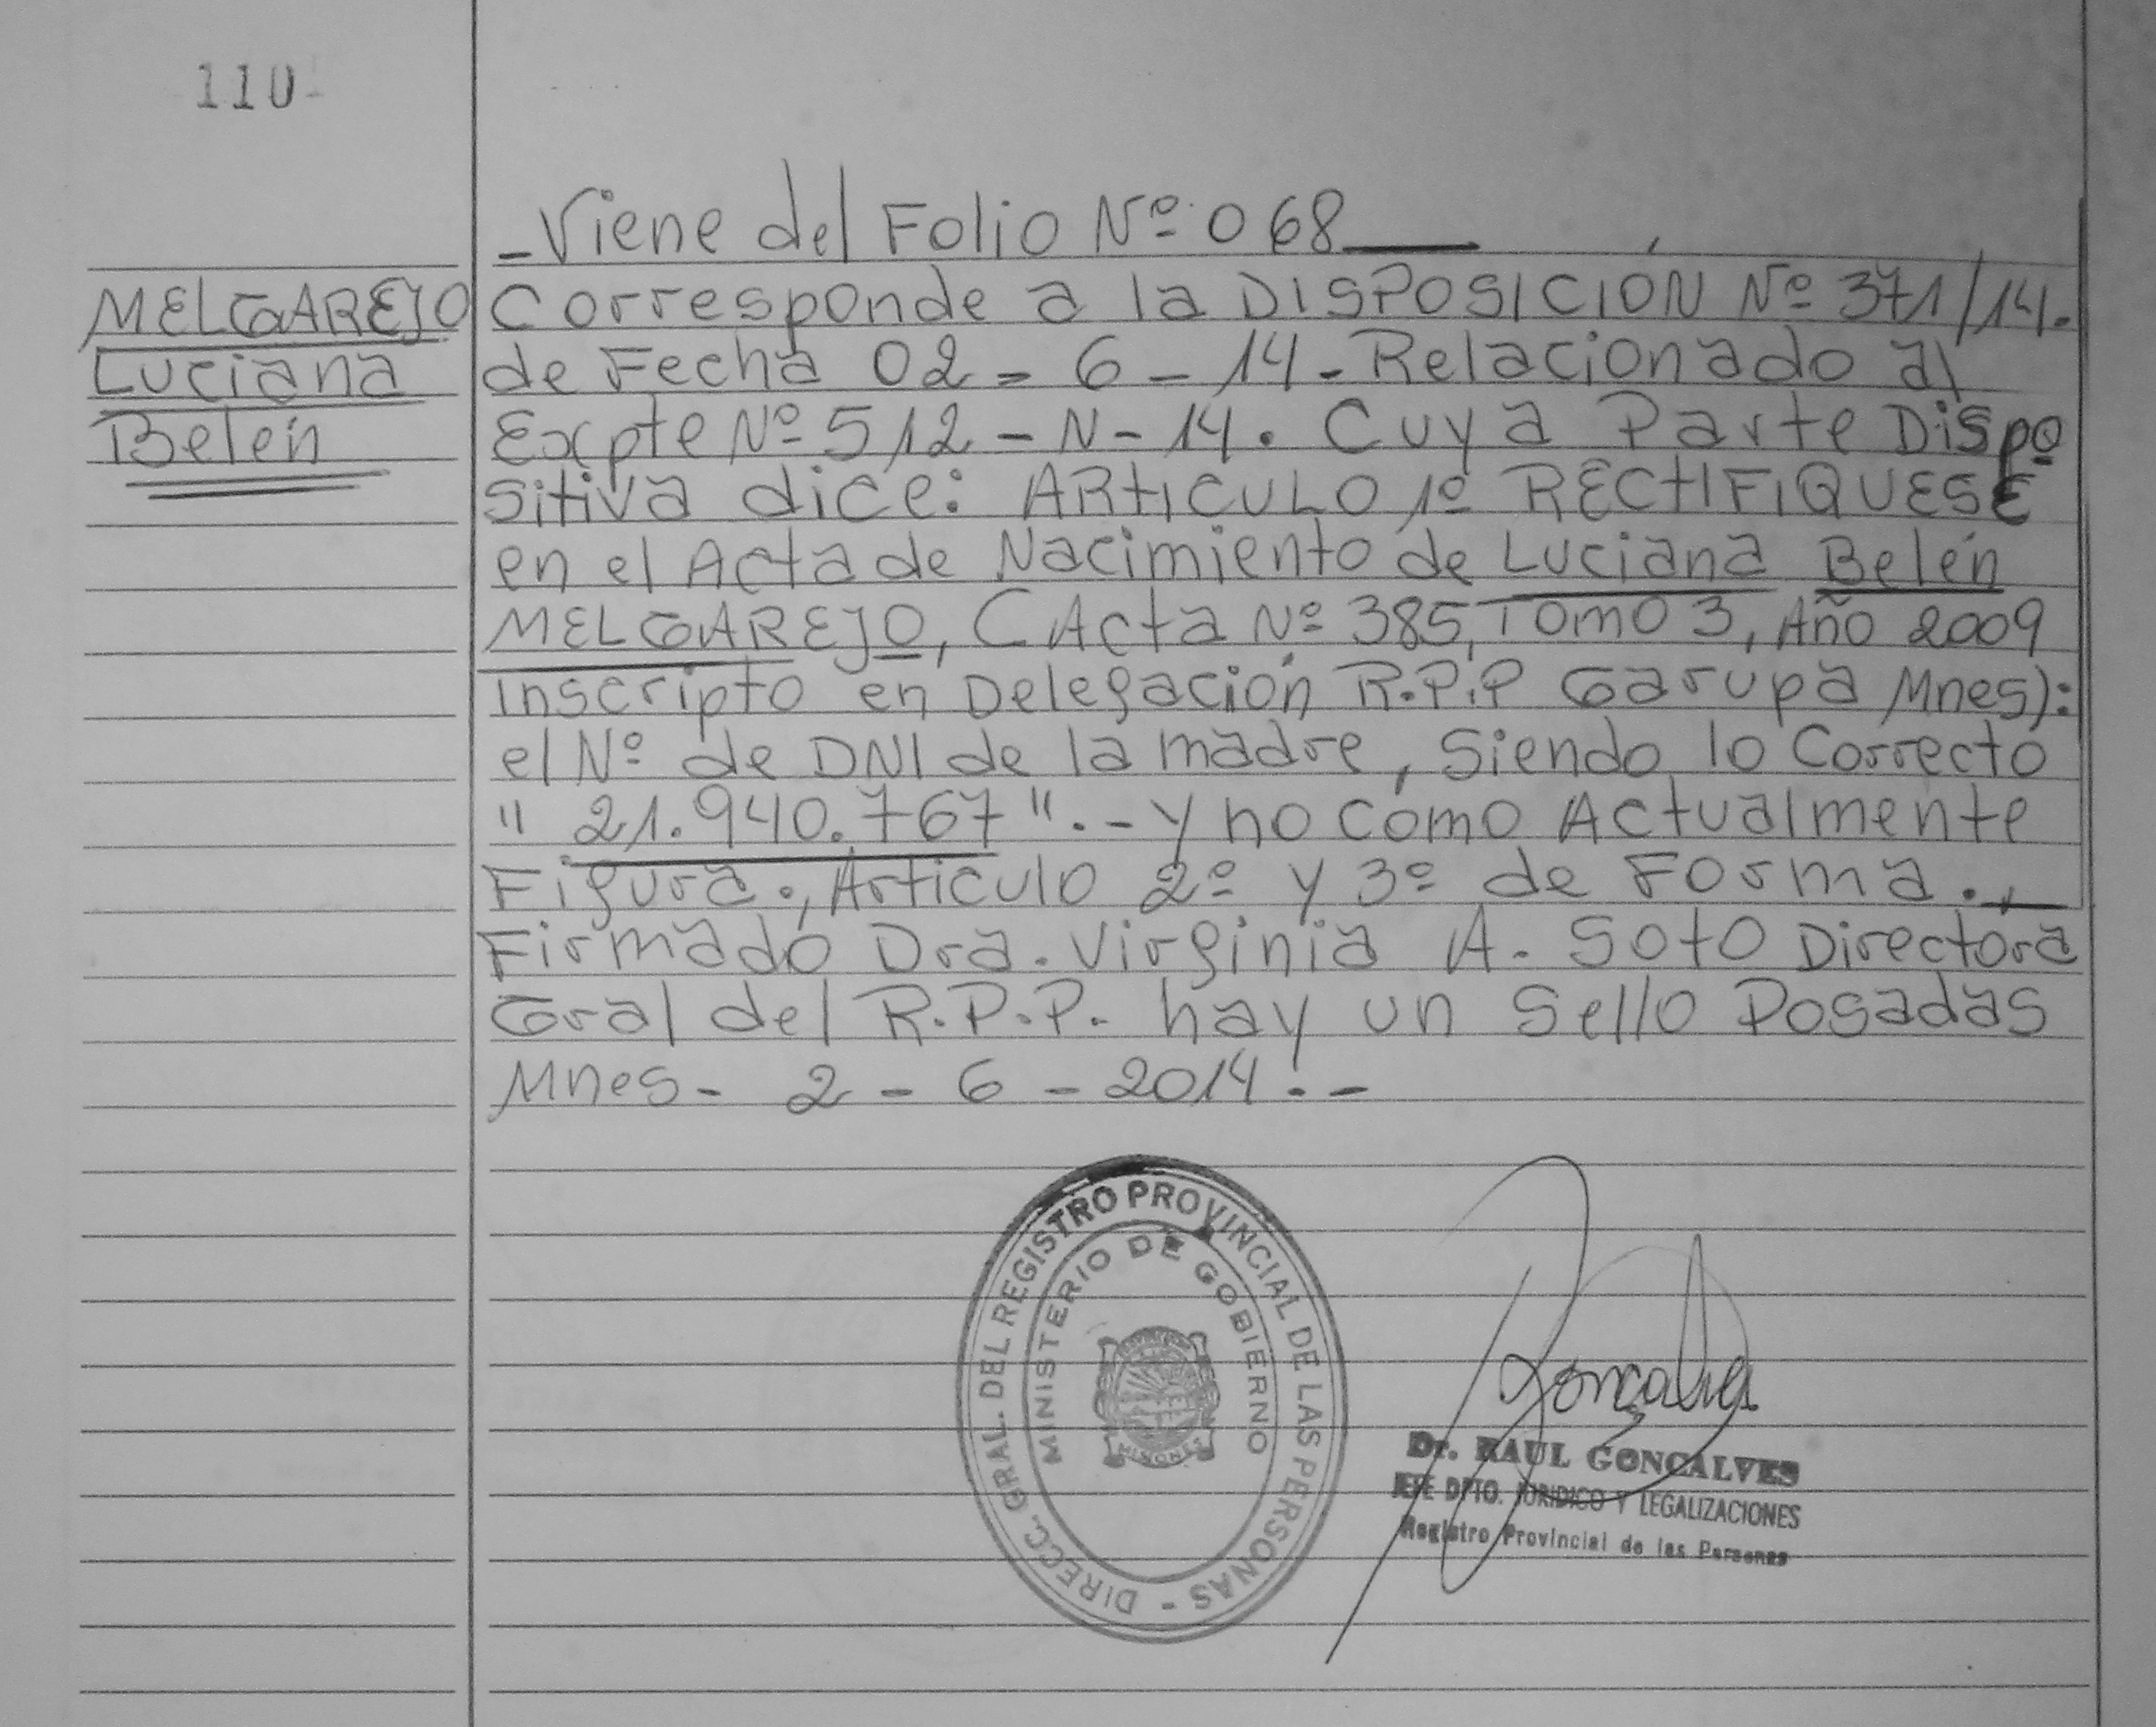 110
MELGAREJO
Luciana
Belén
- Viene del Folio Nº 068
Corresponde a la DISPOSICIÓN Nº 371/14.
de Fecha 02 - 6 - 14 - Relacionado al
Expte Nº 512 - N - 14. Cuya Parte Dispo
sitiva dice: ARTICULO 1º RECTIFIQUESE
en el Acta de Nacimiento de Luciana Belén
MELGAREJO, CActa Nº 385, Tomo 3, Año 2009
Inscripto en Delegación R.P.P Garupa Mnes):
el Nº de DNI de la madre, Siendo lo Correcto
" 21.940.767 ". - y no como Actualmente
Figura., Articulo 2º y 3º de Forma.,
Firmado Dra. Virginia A. Soto Directora
Gral del R.P.P. hay un Sello Posadas
Mnes - 2 - 6 - 2014. -
DIRECC. GRAL. DEL REGISTRO PROVINCIAL DE LAS PERSONAS -
MINISTERIO DE GOBIERNO
MISIONES
Goncalves
Dr. RAUL GONCALVES
JEFE DPTO. JURIDICO Y LEGALIZACIONES
Registro Provincial de las Personas